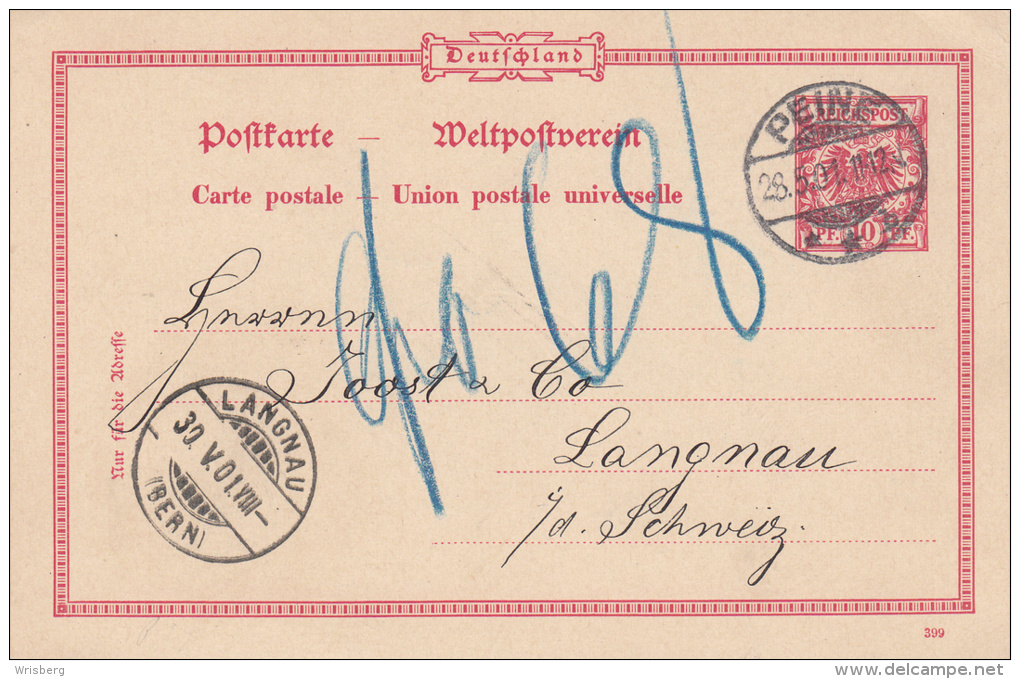 Deutschland
Postkarte — Weltpostverein
Carte postale — Union postale universelle
REICHSPOST
PF. 10 PF.
PEINE
28.5.01.11-12
Herren
Joost & Co
Langnau
i/d. Schweiz.
Nur für die Adresse
LANGNAU
30.V.01.VIII—
(BERN)
399
Wrisberg
www.delcampe.net